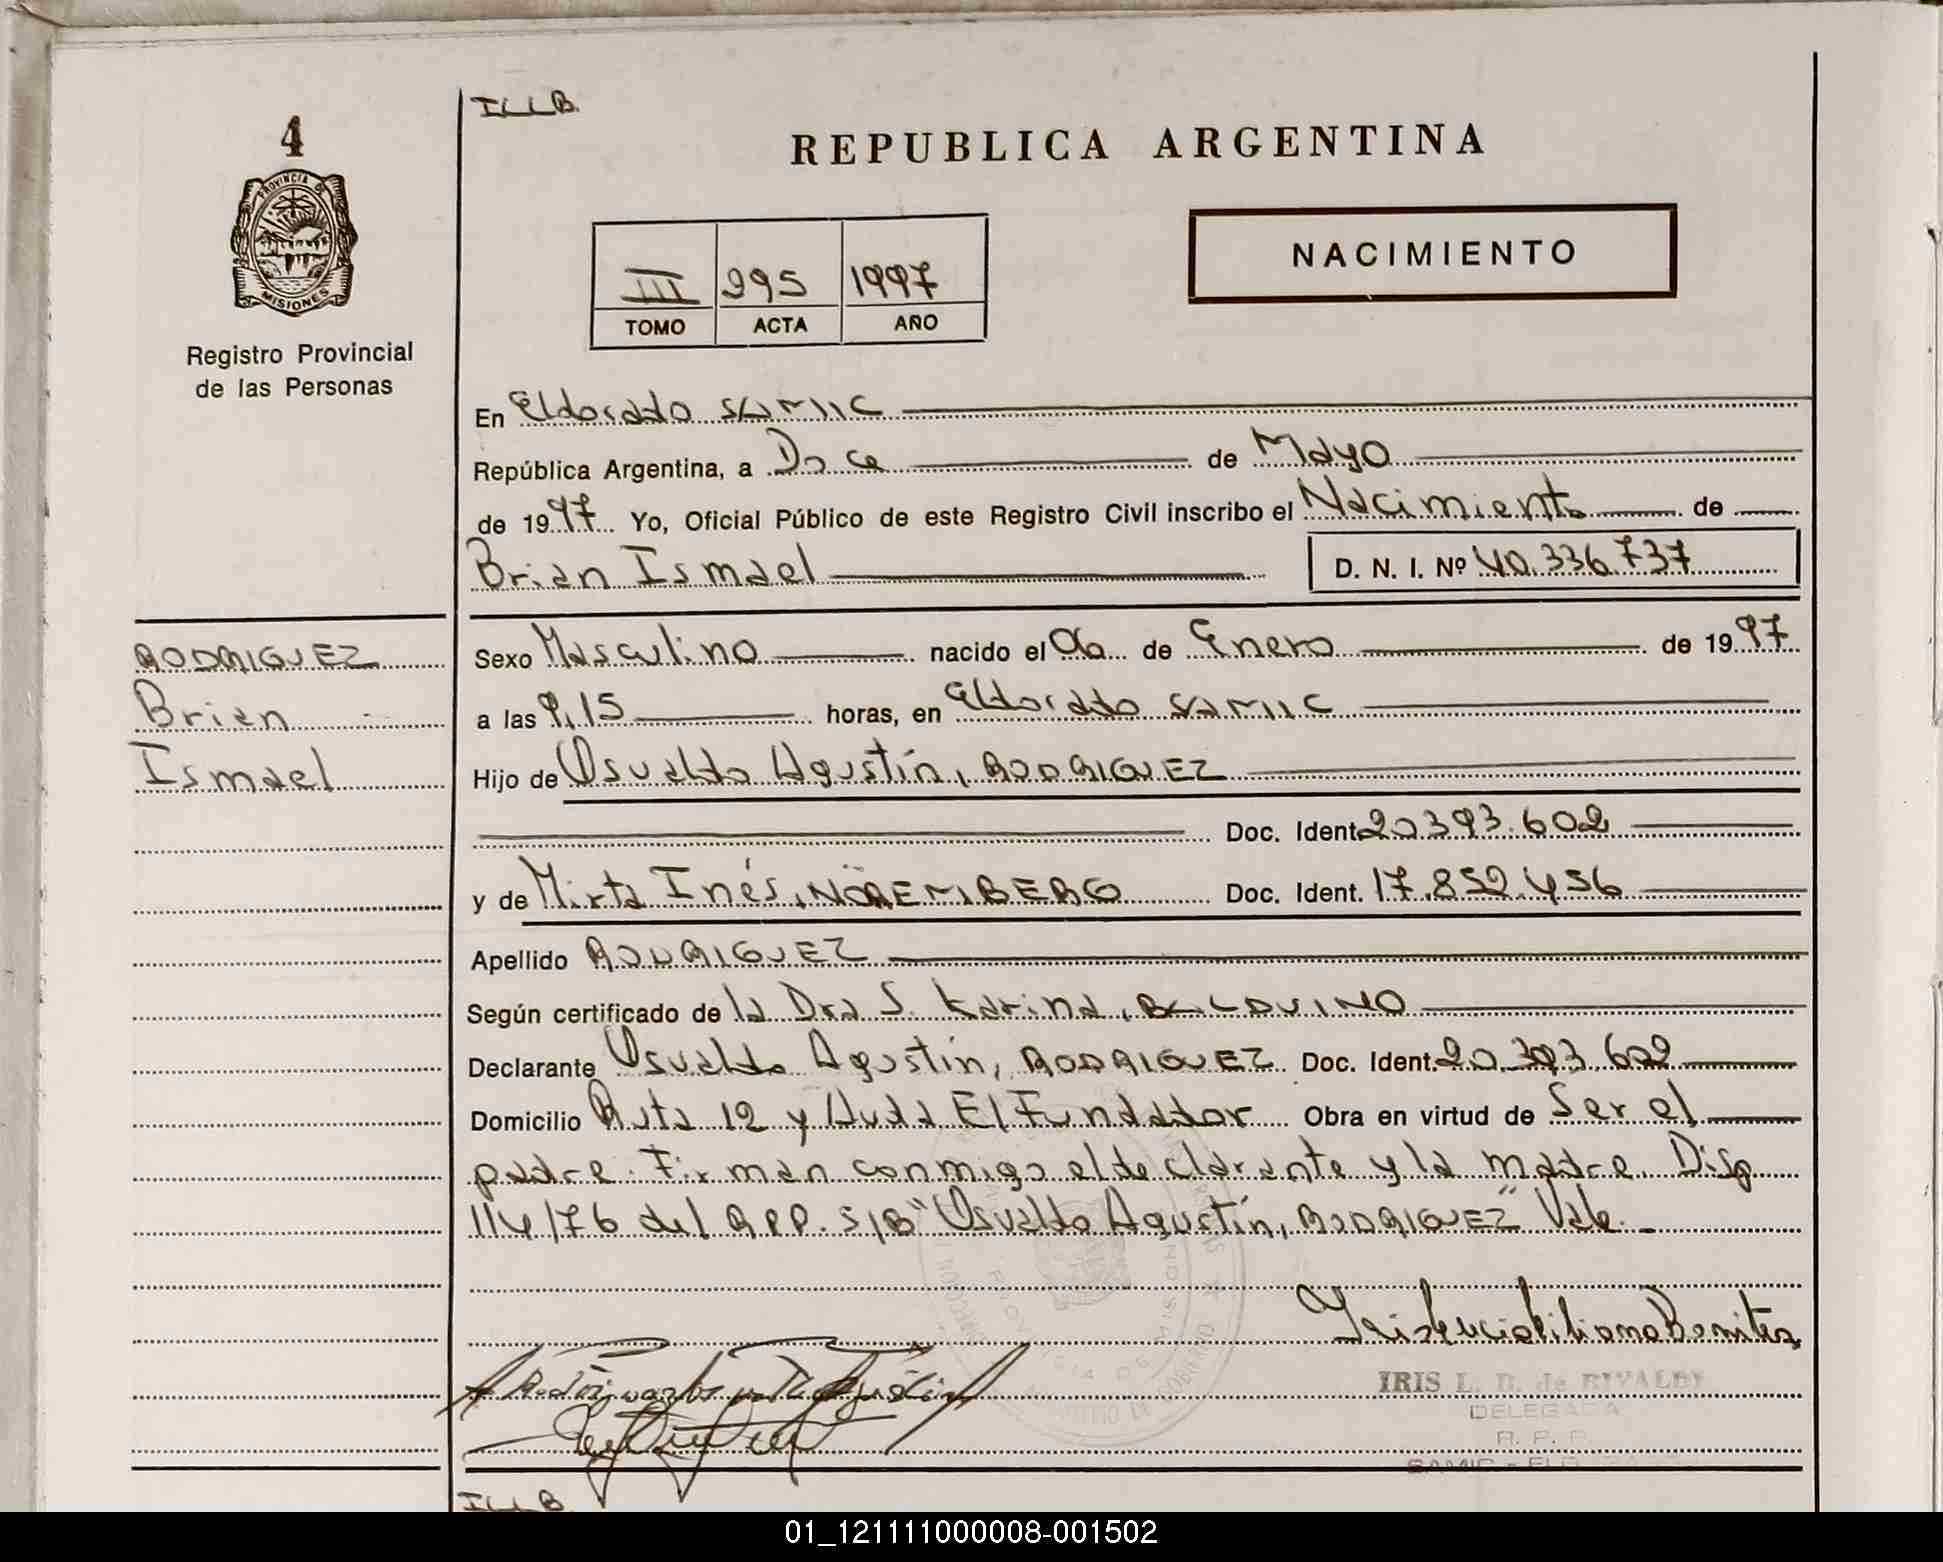 ILLB.
4
REPUBLICA ARGENTINA
PROVINCIA DE
MISIONES
NACIMIENTO
III 295 1997
TOMO ACTA AÑO
Registro Provincial
de las Personas
En Eldorado SAMIC
República Argentina, a Doce de Mayo
de 1997 Yo, Oficial Público de este Registro Civil inscribo el Nacimiento de
Brian Ismael D. N. I. Nº 40.336.737
RODRIGUEZ
Brian
Ismael
Sexo Masculino nacido el 06 de Enero de 1997
a las 9,15 horas, en Eldorado SAMIC
Hijo de Osvaldo Agustín, RODRIGUEZ
Doc. Ident. 20.393.602
y de Mirta Inés, NÖREMBERG Doc. Ident. 17.852.456
Apellido RODRIGUEZ
Según certificado de la Dra S. Karina, BALDUINO
Declarante Osvaldo Agustín, RODRIGUEZ Doc. Ident. 20.393.602
Domicilio Ruta 12 y Avda El Fundador Obra en virtud de Ser el
padre. Firman conmigo el declarante y la madre. Disp
114/76 del RPP. S/B "Osvaldo Agustín, RODRIGUEZ" Vale.
IRIS L. B. de RIVALDI
DELEGADA
R. P. P.
ILLB.
01_121111000008-001502